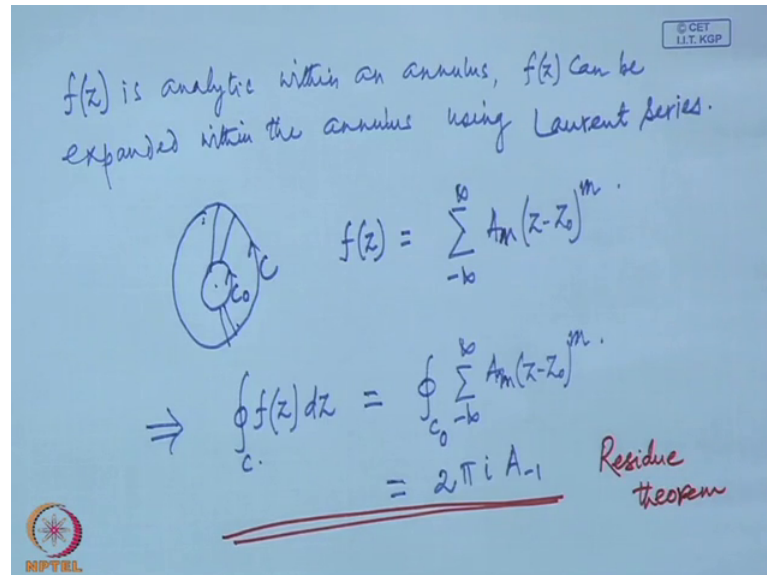 © CET
I.I.T. KGP
f(z) is analytic within an annulus, f(z) can be
expanded within the annulus using Laurent Series.
C
C₀
f(z) = ∑_{-∞}^{∞} A_m (z-z₀)^m .
⇒ ∮_C. f(z) dz = ∮_{C₀} ∑_{-∞}^{∞} A_m (z-z₀)^m .
= 2πi A_{-1}
Residue
theorem
NPTEL